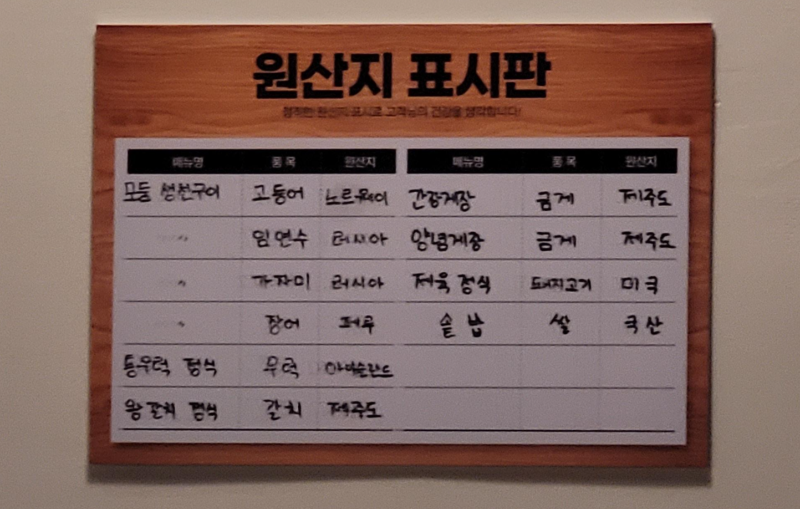 원산지 표시판
정직한 원산지 표시로 고객님의 건강을 생각합니다!
메뉴명 품목 원산지 메뉴명 품목 원산지
모둠 생선구이 고등어 노르웨이 간장게장 금게 제주도
〃 임연수 러시아 양념게장 금게 제주도
〃 가자미 러시아 제육 정식 돼지고기 미국
〃 장어 페루 솥밥 쌀 국산
통우럭 정식 우럭 아이슬란드
왕갈치 정식 갈치 제주도